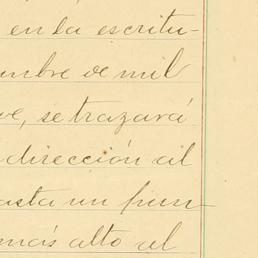 en la escritu-
mbre de mil
ve, se trazará
dirección al
asta un pun
más alto al